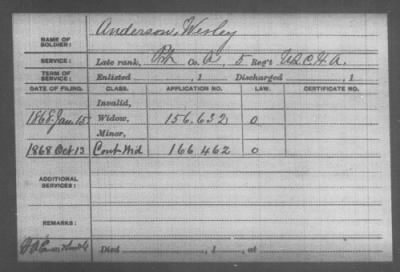 NAME OF SOLDIER: Anderson, Wesley
SERVICE: Late rank, Pvt Co. A, 5 Reg't U.S.C.H.A.
TERM OF SERVICE: Enlisted , 1 Discharged , 1
DATE OF FILING. CLASS. APPLICATION NO. LAW. CERTIFICATE NO.
Invalid,
1868 Jan 15 Widow, 156.632 O
Minor,
1868 Oct 13 Cont Wid 166 462 O
ADDITIONAL SERVICES:
REMARKS:
Died , 1 , at